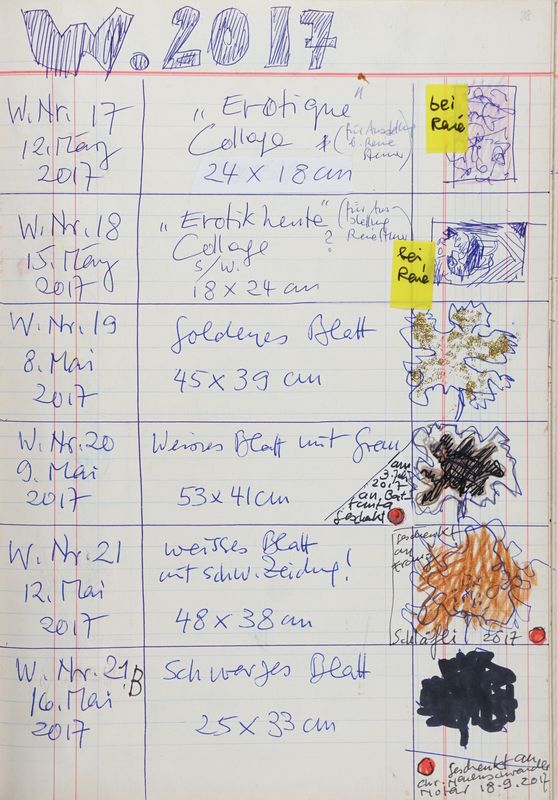 W. 2017
28
W.Nr. 17
12. März
2017
"Erotique"
Collage
24 x 18 cm
(für Ausstellung
b. René
bei
René
W.Nr. 18
15. März
2017
"Erotik heute"
Collage
s/w.
18 x 24 cm
(für Aus-
stellung
?
bei
René
W.Nr. 19
8. Mai
2017
Goldenes Blatt
45 x 39 cm
W.Nr. 20
9. Mai
2017
Weisses Blatt mit Grau
53 x 41 cm
am
3. Juli
2017
an Beat
geschenkt
W.Nr. 21
12. Mai
2017
weisses Blatt
mit schw. Zeichnung!
48 x 38 cm
Geschenkt
an
Franz
Schäfli 2017
W.Nr. 21 B
16. Mai
2017
Schwarzes Blatt
25 x 33 cm
Geschenkt an
Notar 18.9.2017